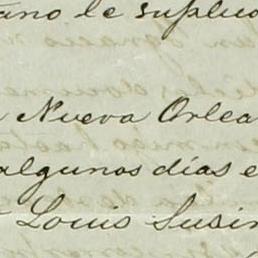 ano le suplico
Nueva Orlea
algunos días e
Louis Susin